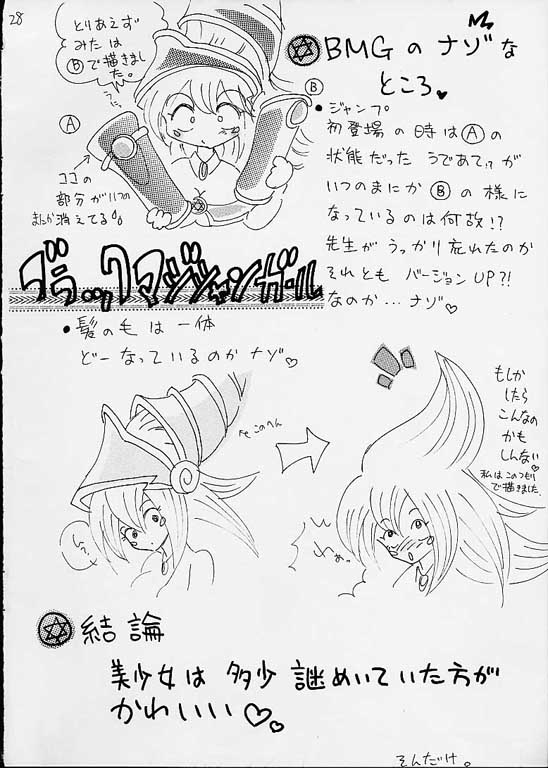 28
とりあえず
みたは
Ⓑで描きまし
た。
BMGのナゾな
ところ♥
Ⓐ
Ⓑ
ココの
部分がいつの
まにか消えてる
・ジャンプ
初登場の時はⒶの
状態だった うであてが
いつのまにか Ⓑ の様に
なっているのは何故!?
先生が うっかり忘れたのか
それとも バージョンUP?!
なのか… ナゾ♡
ブラックマジシャンガール
・髪の毛は一体
どーなっているのか ナゾ♡
このへん
もしか
したら
こんなの
かも
しんない♡
私はこのつもり
で描きました。
結論
美少女は 多少 謎めいていた方が
かわいい♡。
そんだけ。